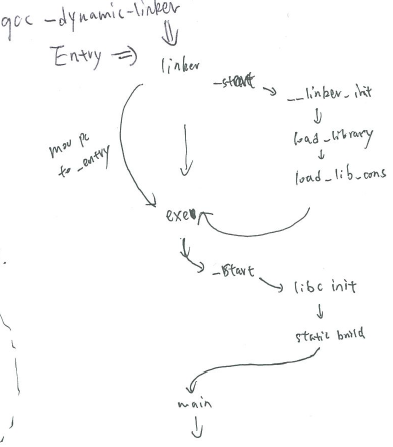 gcc -dynamic-linker
Entry ⇒
linker
_start
__linker_init
load_library
load_lib_cons
mov pc
to _entry
exec
_start
libc init
static build
main